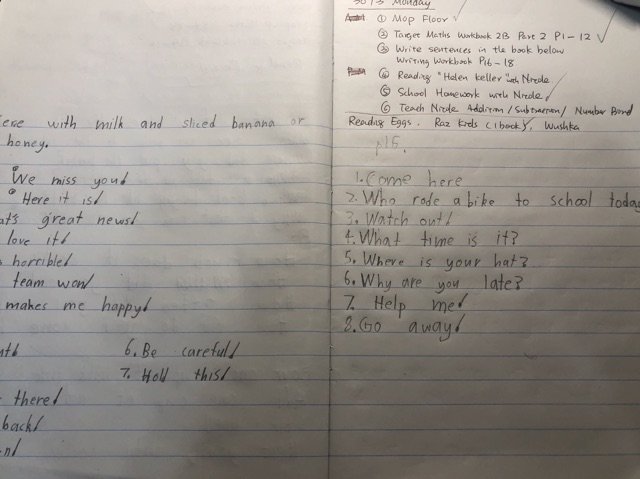 ere with milk and sliced banana or
honey.
We miss you!
Here it is!
at's great news!
love it!
horrible!
team won!
makes me happy!
6. Be careful!
7. Hold this!
there!
back!
30/3 Monday
① Mop Floor
② Target Maths Workbook 2B Part 2 P1-12
③ Write sentences in the book below
Writing Workbook P16-18
④ Reading "Helen Keller" with Nicole
⑤ School Homework with Nicole
⑥ Teach Nicole Addition / Subtraction / Number Bond
Reading Eggs. Raz Kids (1 book), Wushka
P16.
1. Come here
2. Who rode a bike to school today
3. Watch out!
4. What time is it?
5. Where is your hat?
6. Why are you late?
7. Help me!
8. Go away!